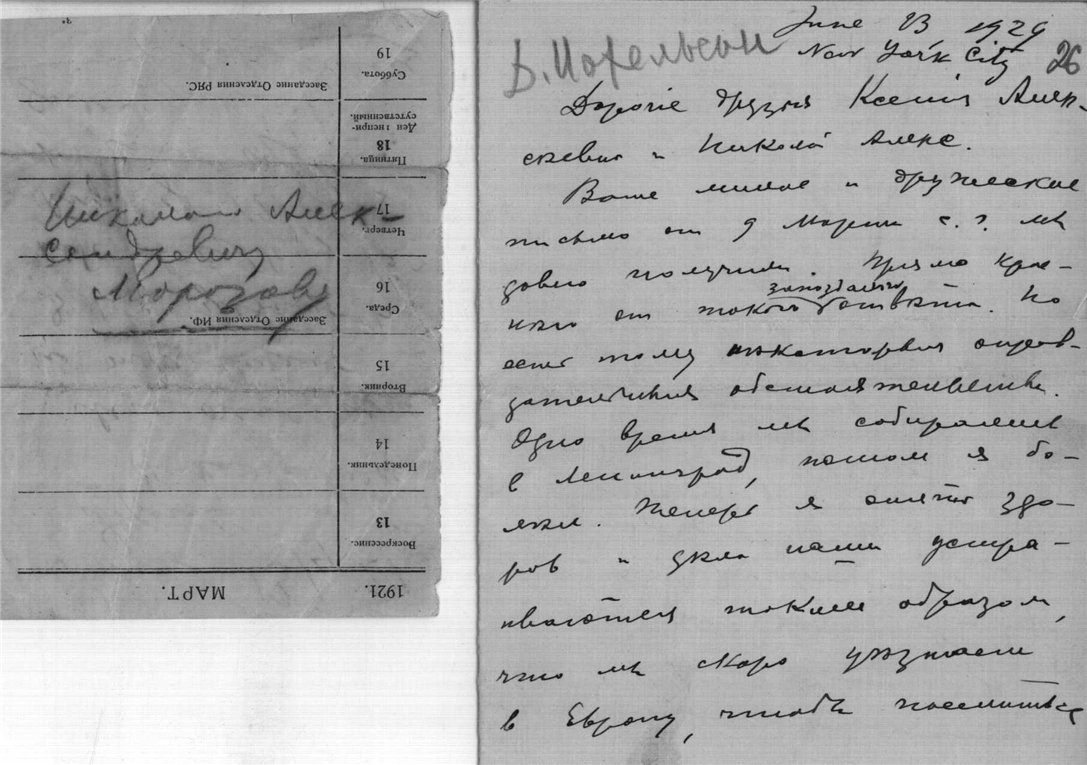 1921. МАРТ.
Воскресенье. 13
Понедельник. 14
Вторник. 15
Среда. 16 Заседание Отделения ИФ.
Четверг. 17
Пятница. 18 День неприсутственный.
Суббота. 19 Заседание Отделения РЯС.
Николаю Алек-
сандровичу
Морозову
В. Иохельсон
June 1929
New York City 26
Дорогіе друзья Ксенія Алек-
сѣевна и Николай Алекс.
Ваше милое и дружеское
письмо от 9 Марта с. г. мы
давно получили. Прямо крас-
нѣю от такого запоздалаго отвѣта. Но
есть тому нѣкоторыя оправ-
дательныя обстоятельства.
Одно время мы собирались
в Ленинград, потом я бо-
лѣл. Теперь я опять здо-
ров и дѣла наши устра-
иваются таким образом,
что мы скоро уѣзжаем
в Европу, чтобы поселиться